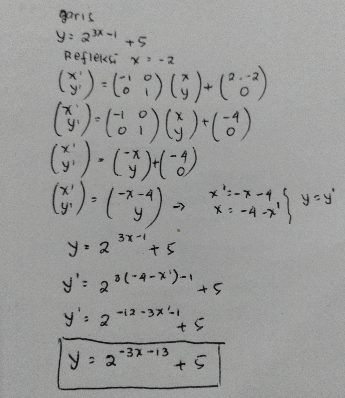 garis
y = 2^{3x-1} + 5
Refleksi x = -2
(x' y') = (-1 0 0 1) (x y) + (2.-2 0)
(x' y') = (-1 0 0 1) (x y) + (-4 0)
(x' y') = (-x y) + (-4 0)
(x' y') = (-x-4 y) → x' = -x-4 x = -4-x' } y = y'
y = 2^{3x-1} + 5
y' = 2^{3(-4-x')-1} + 5
y' = 2^{-12-3x'-1} + 5
y = 2^{-3x-13} + 5